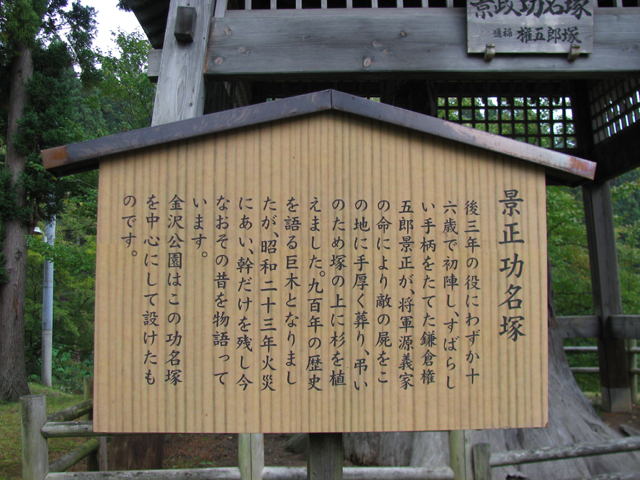 景政功名塚
通称 権五郎塚
景正功名塚
後三年の役にわずか十
六歳で初陣し、すばらし
い手柄をたてた鎌倉権
五郎景正が、将軍源義家
の命により敵の屍をこ
の地に手厚く葬り、弔い
のため塚の上に杉を植
えました。九百年の歴史
を語る巨木となりまし
たが、昭和二十三年火災
にあい、幹だけを残し今
なおその昔を物語って
います。
金沢公園はこの功名塚
を中心にして設けたも
のです。